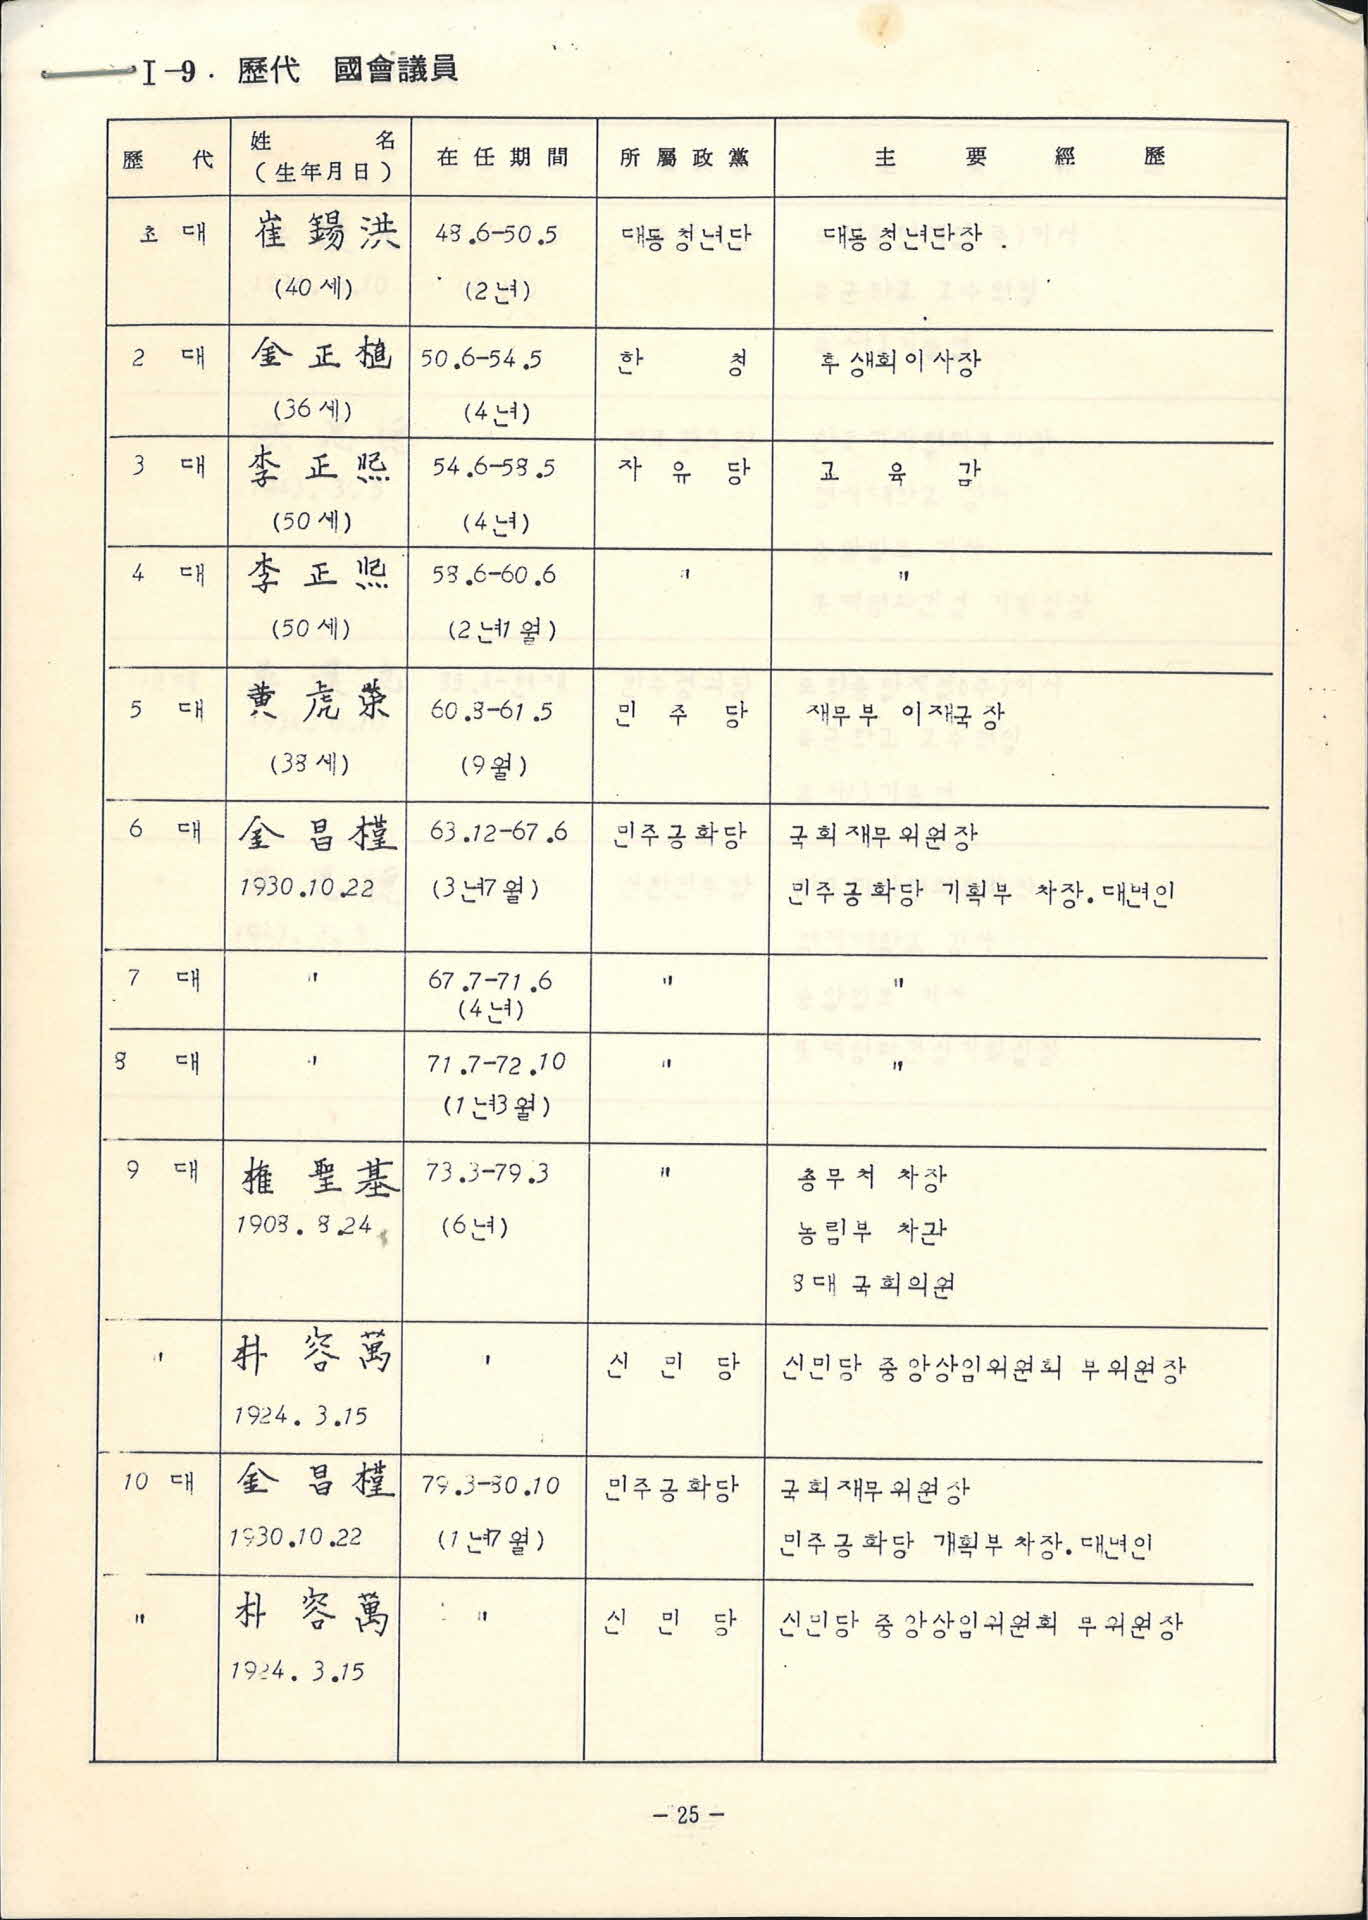 I-9. 歷代 國會議員
歷代 姓名 在任期間 所屬政黨 主要經歷
(生年月日)
초대 崔錫洪 48.6-50.5 대동청년단 대동청년단장
(40세) (2년)
2대 金正植 50.6-54.5 한청 후생회이사장
(36세) (4년)
3대 李正熙 54.6-58.5 자유당 교육감
(50세) (4년)
4대 李正熙 58.6-60.6 〃 〃
(50세) (2년1월)
5대 黃虎榮 60.8-61.5 민주당 재무부 이재국장
(38세) (9월)
6대 金昌槿 63.12-67.6 민주공화당 국회재무위원장
1930.10.22 (3년7월) 민주공화당 기획부 차장.대변인
7대 〃 67.7-71.6 〃 〃
(4년)
8대 〃 71.7-72.10 〃 〃
(1년3월)
9대 權聖基 73.3-79.3 〃 총무처 차장
1908. 8.24 (6년) 농림부 차관
8대 국회의원
〃 朴容萬 〃 신민당 신민당 중앙상임위원회 부위원장
1924. 3.15
10대 金昌槿 79.3-80.10 민주공화당 국회재무위원장
1930.10.22 (1년7월) 민주공화당 개획부차장.대변인
〃 朴容萬 〃 신민당 신민당 중앙상임위원회 부위원장
1924. 3.15
- 25 -